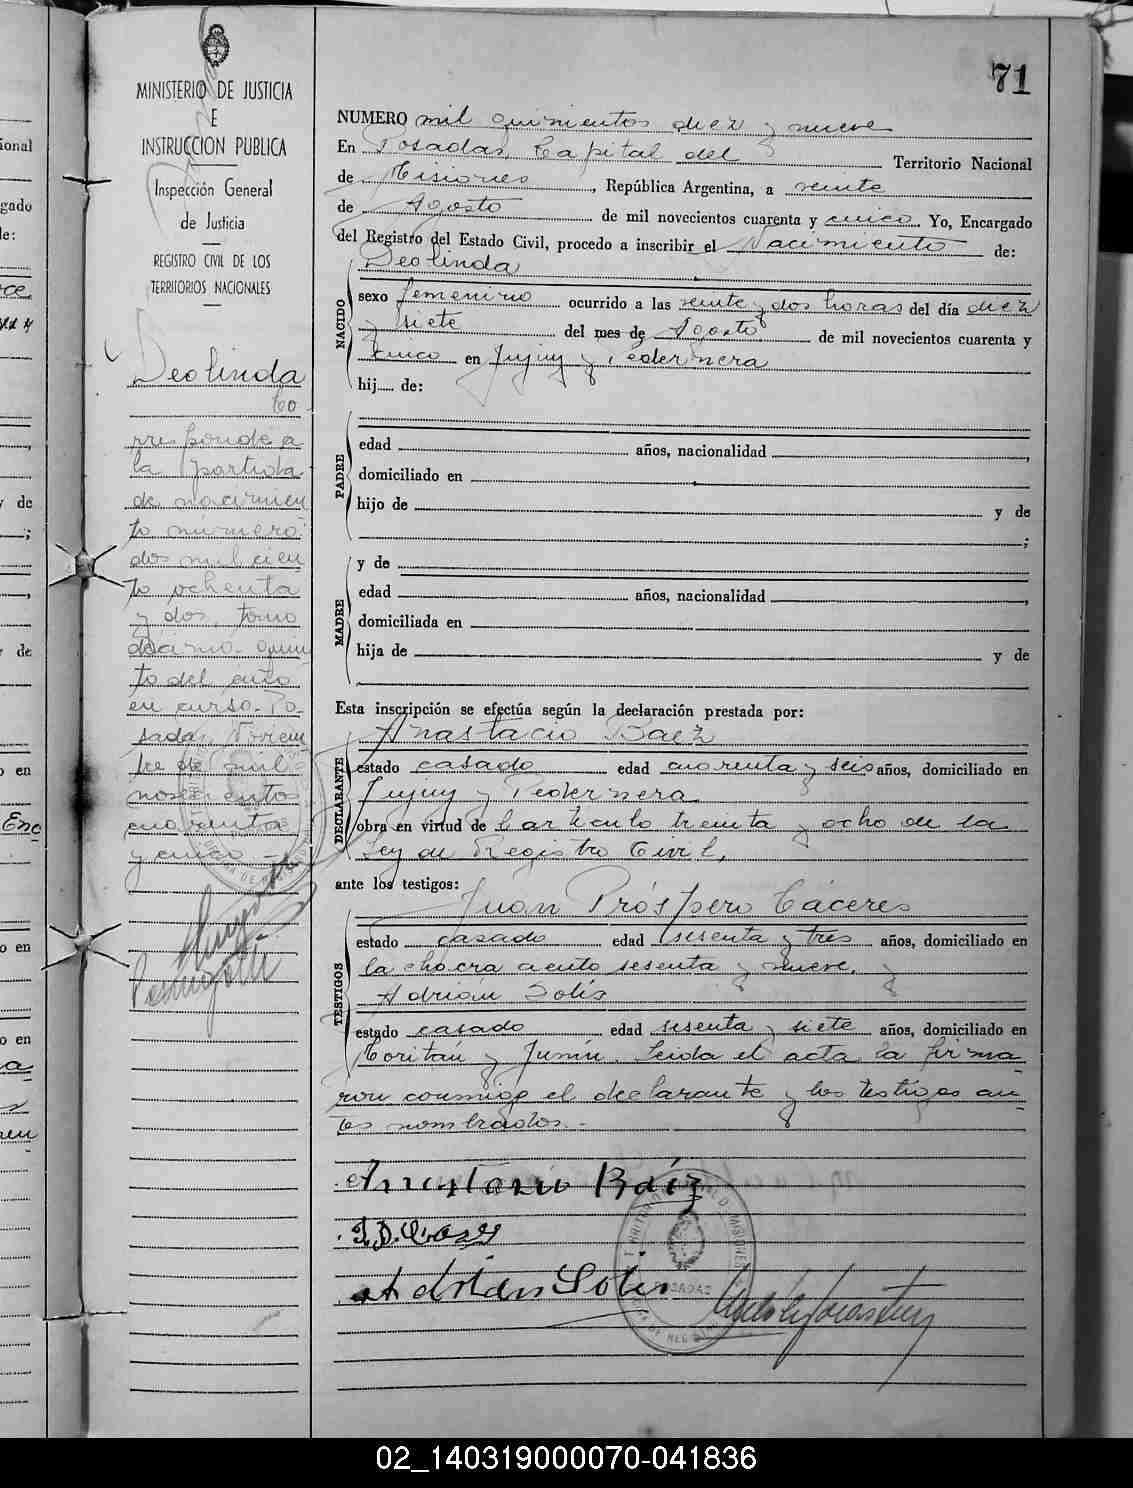 71
MINISTERIO DE JUSTICIA
E
INSTRUCCION PUBLICA
Inspección General
de Justicia
REGISTRO CIVIL DE LOS
TERRITORIOS NACIONALES
Deolinda
Co
rresponde a
la partida
de nacimien
to número:
dos mil cien
to ochenta
y dos, tomo
décimo quin
to del año
en curso. Po-
sadas, Noviem
bre de mil
novecientos
cuarenta
y cinco.-
NUMERO mil quinientos diez y nueve
En Posadas, Capital del Territorio Nacional
de Misiones, República Argentina, a veinte
de Agosto de mil novecientos cuarenta y cinco. Yo, Encargado
del Registro del Estado Civil, procedo a inscribir el Nacimiento de:
Deolinda
NACIDO
sexo femenino ocurrido a las veinte y dos horas del día diez
y siete del mes de Agosto de mil novecientos cuarenta y
cinco en Jujuy y Pedernera
hij de:
PADRE
edad años, nacionalidad
domiciliado en
hijo de y de
;
MADRE
y de
edad años, nacionalidad
domiciliada en
hija de y de
Esta inscripción se efectúa según la declaración prestada por:
DECLARANTE
Anastacio Baez
estado casado edad cuarenta y seis años, domiciliado en
Jujuy y Pedernera
obra en virtud de l'artículo treinta y ocho de la
Ley de Registro Civil,
ante los testigos:
TESTIGOS
Juan Próspero Cáceres
estado casado edad sesenta y tres años, domiciliado en
la chacra ciento sesenta y nueve, y
Adrián Solís
estado casado edad sesenta y siete años, domiciliado en
Coritán y Junín. Leida el acta la firma-
ron conmigo el declarante y los testigos an-
tes nombrados.-
Anastacio Baéz
Adrian Solis
POSADAS
02_140319000070-041836